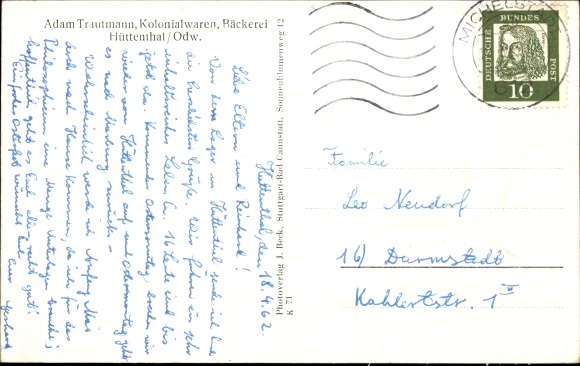 Adam Trautmann, Kolonialwaren, Bäckerei
Hüttenthal/Odw.
Hüttenthal, den 18.4.62.
Liebe Eltern und Reinhard!
Von dem Lager in Hüttenthal sende ich Euch
die herzlichsten Grüße. Wir führen ein sehr
inhaltsreiches Leben (ca. 16 Leute sind bis
jetzt da. Kommenden Ostersonntag brechen wir
wieder von Hüttenthal auf und Ostermontag geht
es nach Marburg zurück. –
Wahrscheinlich werde ich Anfang Mai
doch nach Hause kommen, da ich für das
Philosophicum eine Menge Unterlagen brauche;
hoffentlich geht es Euch allen recht gut!
Ein frohes Osterfest wünscht Euch
Euer Gerhard
Photoverlag J. Beck, Stuttgart-Bad Cannstatt, Sonnenblumenweg 12
K 71
MICHELST
DEUTSCHE
BUNDES
POST
10
Familie
Leo Neudorf
16) Darmstadt
Kahlertstr. 1 II